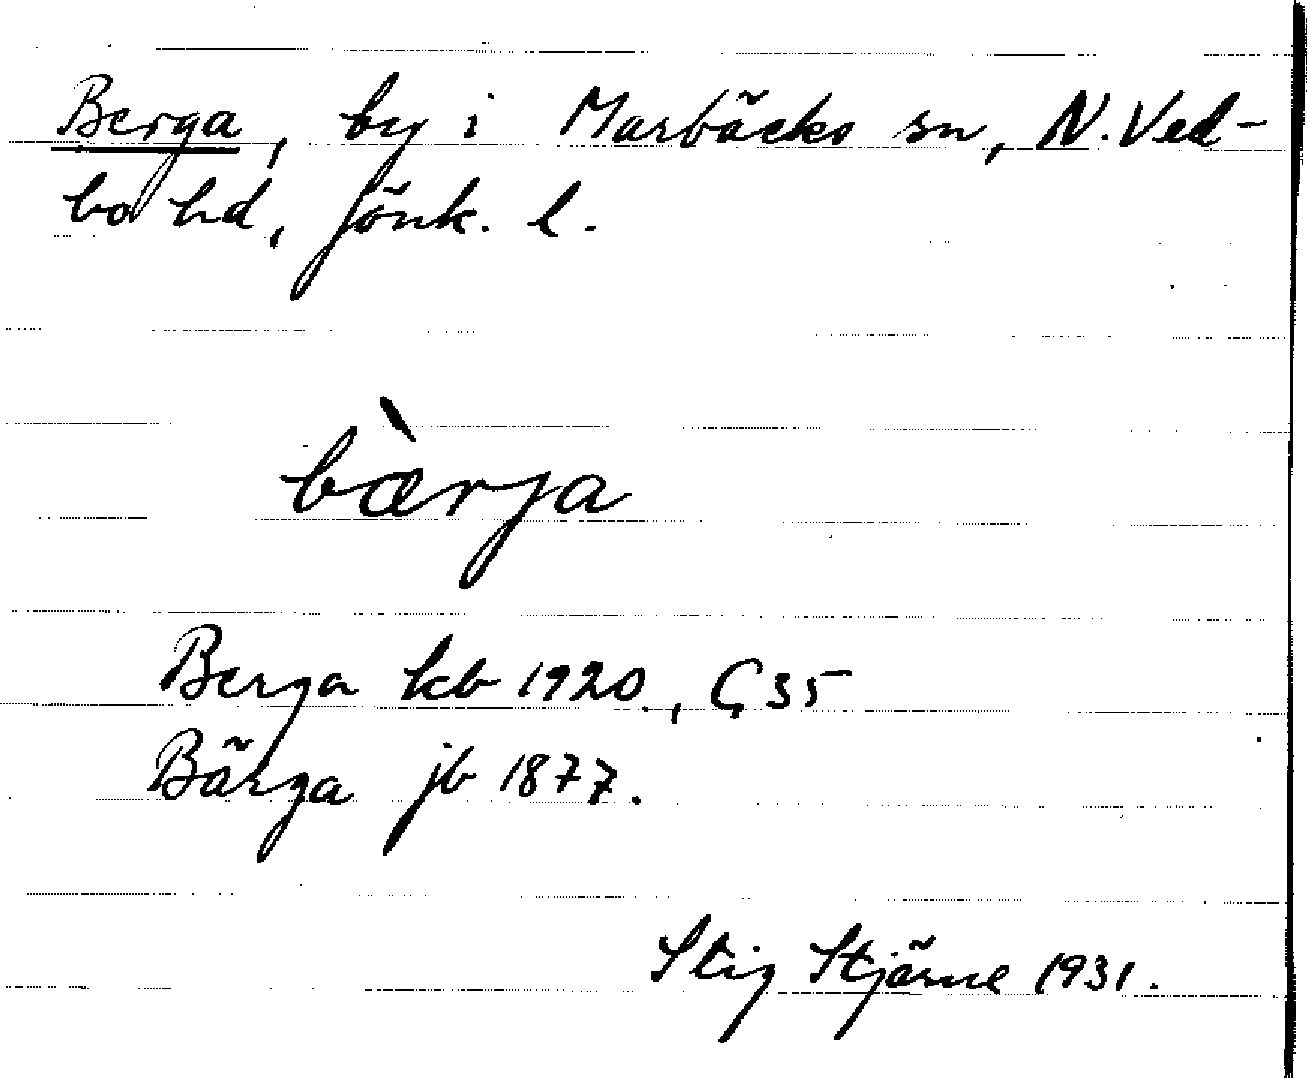 Berga, by i Marbäcks sn, N. Ved-
bo hd, Jönk. l.
bæ̀rja
Berga kb 1920., Ç 35
Bärga jb 1877.
Stig Stjärne 1931.